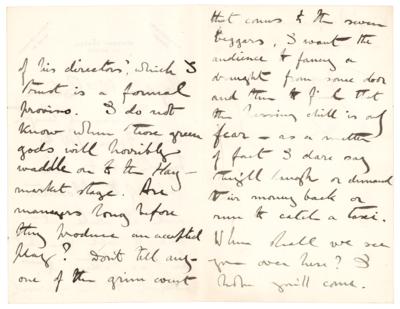 of his directors', which I
trust is a formal
proviso. I do not
know when those green
gods will horribly
waddle on to the Hay-
market stage. Are
managers long before
they produce an accepted
play? Don't tell any-
one of the grim
that comes to the seven
beggars, I want the
audience to fancy a
draught from some door
and then to find that
the chill is only
fear — as a matter
of fact I dare say
they'll laugh or demand
their money back or
run to catch a taxi.
When shall we see
you over here? I
hope you'll come.